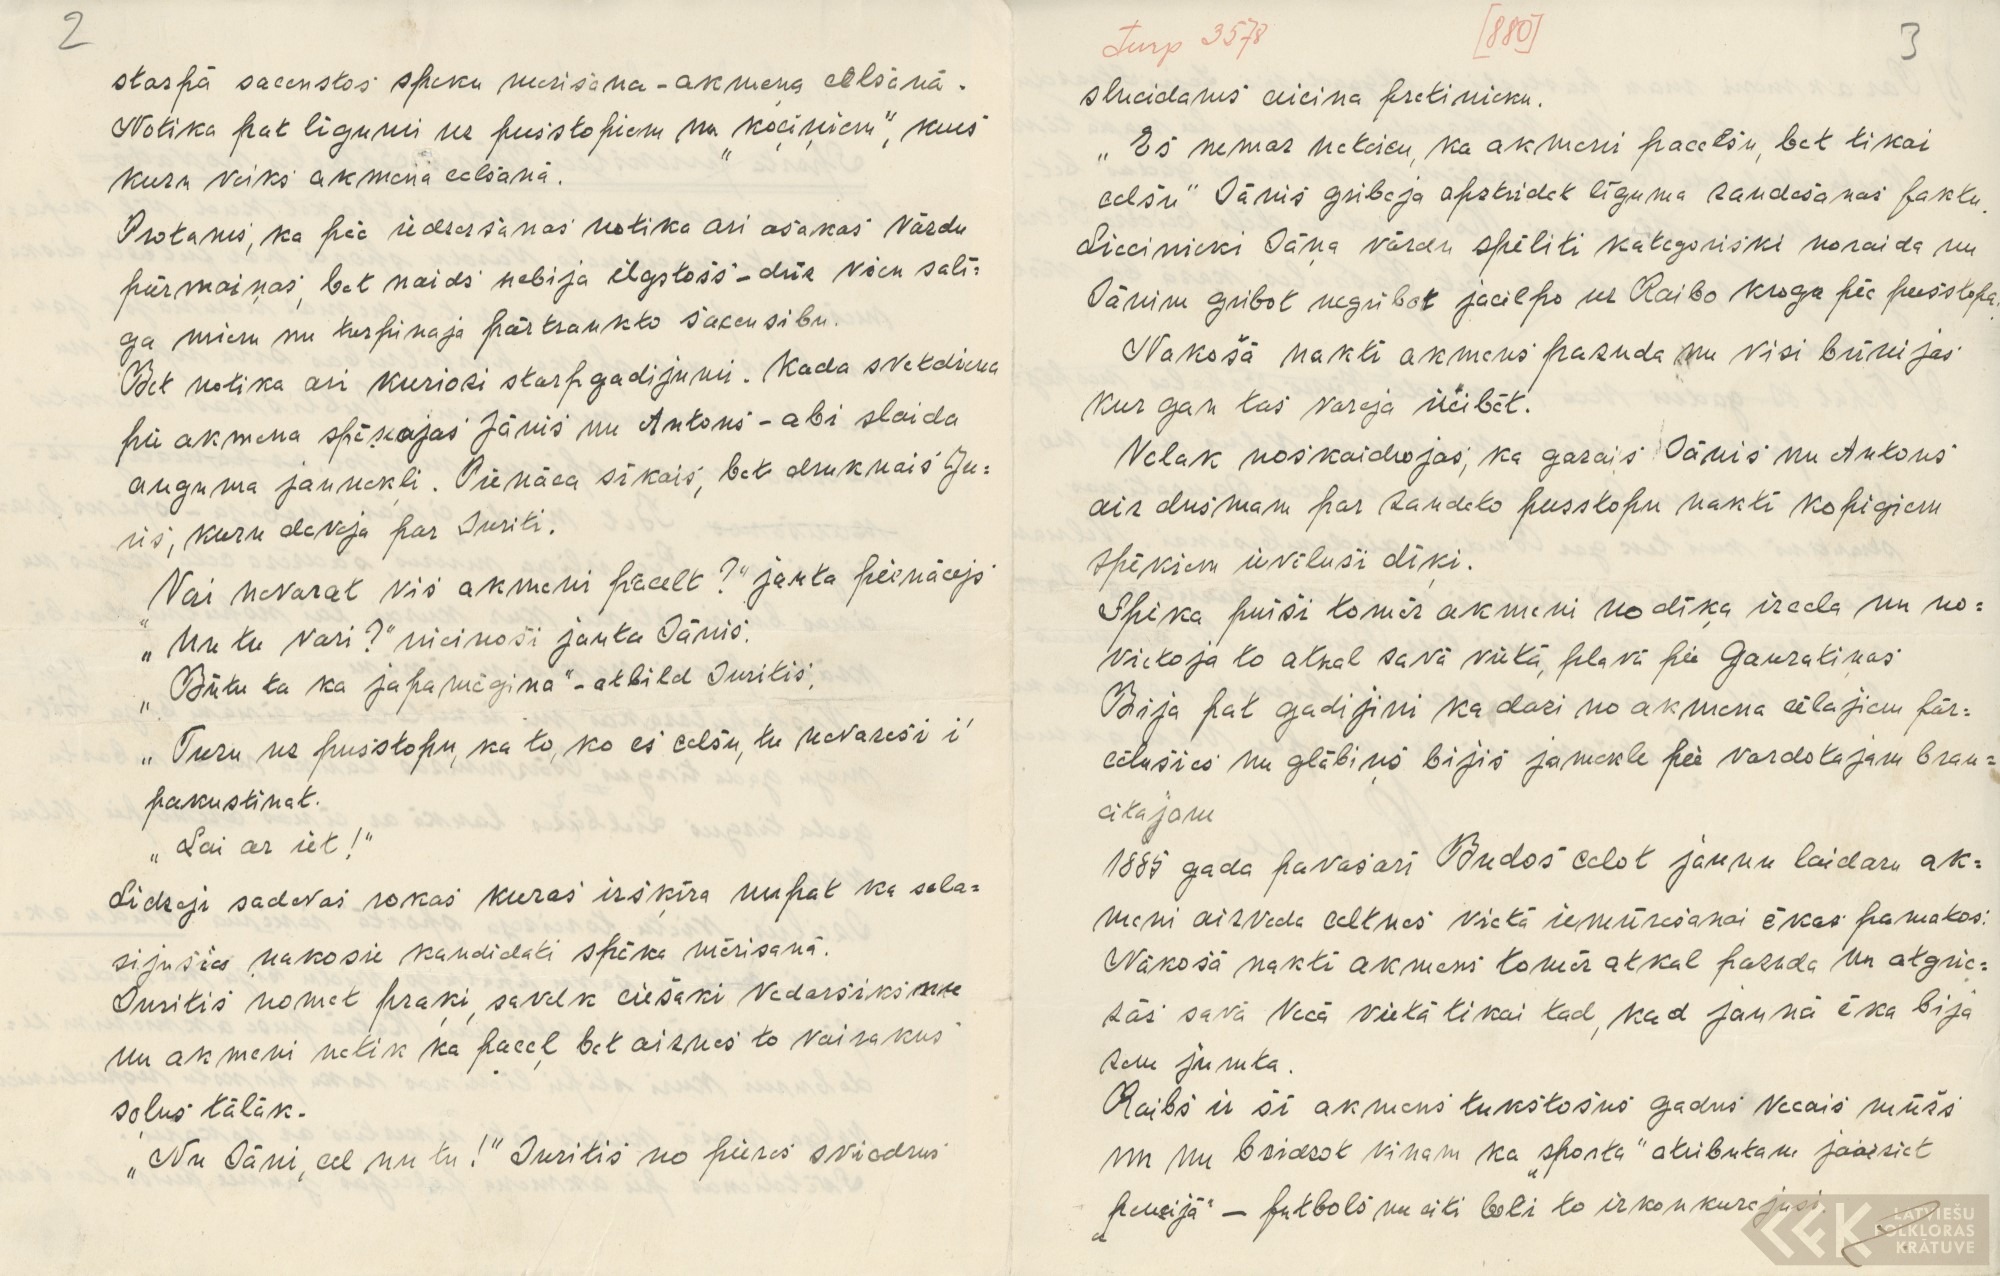 2
starpā sacenstos speku merišana - akmeņa celšanā.
Notika pat līgumi uz pusstopiem un „kociņiem", kurš
kuru veiks akmeņa celšanā.
Protams, ka pēc iedzeršanas notika ari asakas vārdu
pārmaiņas, bet naids nebija ilgstošs - drīz vien salī-
ga mieru un turpinaja pārtraukto sacensibu.
Bet notika ari kuriozi starpgadijumi. Kada svetdiena
pie akmeņa spēkojas Jānis un Antons - abi slaida
auguma jaunekļi. Pienāca sīkais, bet druknais Ju-
ris, kuru deveja par Juriti.
„Vai nevarat vis akmeni pacelt?" jauta pienācejs
„Un tu vari?" nicinoši jauta Jānis.
„Būtu ta ka japamēgina" - atbild Juritis,
„Turu uz pusstopu, ka to, ko es celšu, tu nevaresi i
pakustinat.
„Lai ar iet!"
Lidzeji sadevas rokas kuras izšķīra nupat ka sala-
sijušies nakošie kandidati spēka mērišanā.
Juritis nomet praķi, savelk ciešaki vedarsiksnu
un akmeni netik ka paceļ bet aiznes to vairakus
soļus tālāk.
„Nu Jāni, cel nu tu!" Juritis no pieres sviedrus
Turp 3578 [880] 3
slucidams aicina pretinieku.
„Es nemaz neteicu, ka akmeni pacelšu, bet tikai
celšu" Jānis gribeja apstridet līguma zaudešanas faktu.
Liecinieki Jāņa vārdu spēliti kategoriski noraida un
Jānim gribot negribot jacilpo uz Raibo krogu pēc pusstopa.
Nakošā naktī akmens pazuda un visi brīnijas
kur gan tas vareja izcibēt.
Velak noskaidrojas, ka garais Jānis un Antons
aiz dusmam par zaudeto pusstopu naktī kopigiem
spēkiem ievēluši dīķi.
Spēka puiši tomēr akmeni no dīķa izcela un no-
vietoja to atkal savā vietā, plavā pie Gauratiņas
Bija pat gadijini ka dazi no akmeņa cēlajiem pār-
cēlušies un glābiņs bijis jamekle pie vardotajam brau-
citajam
1885 gada pavasarī Budos celot jaunu laidaru ak-
meni aizveda celtnes vietā iemūrešanai ēkas pamatos.
Nākošā naktī akmens tomēr atkal pazuda un atgrie-
zās savā vecā vietā tikai tad, kad jaunā ēka bija
zem jumta.
Raibs ir šī akmens tukstošus gadus vecais mūžs
un nu beidzot viņam ka „sporta" atributam jaaiziet
„pensijā" - futbols un citi boli to izkonkurejuši.
LATVIEŠU
FOLKLORAS
KRĀTUVE